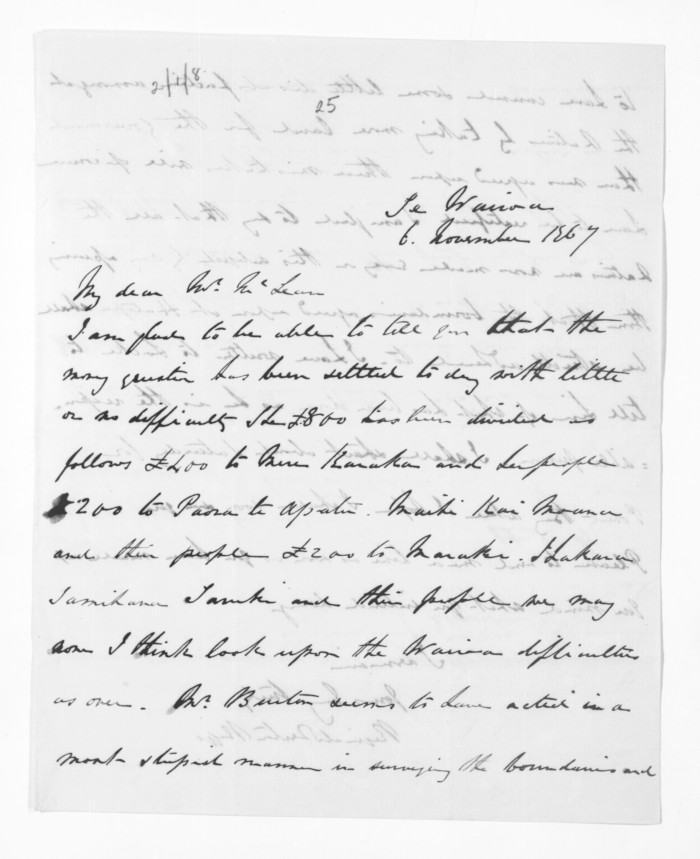 25
Te Wairoa
6. November 1867
My dear Mr. McLean
I am glad to be able to tell you that the
money question has been settled to day with little
or no difficulty The £800 has been divided as
follows £400 to Mere Karaka and her people
£200 to Paora te Apatu. Maihi Kai Moana
and their people £200 to Maraki. Hakara
Tamihana Taruki and their people we may
now I think look upon the Wairoa difficulties
as over. Mr. Burton seems to have acted in a
most stupid manner in surveying the boundaries and